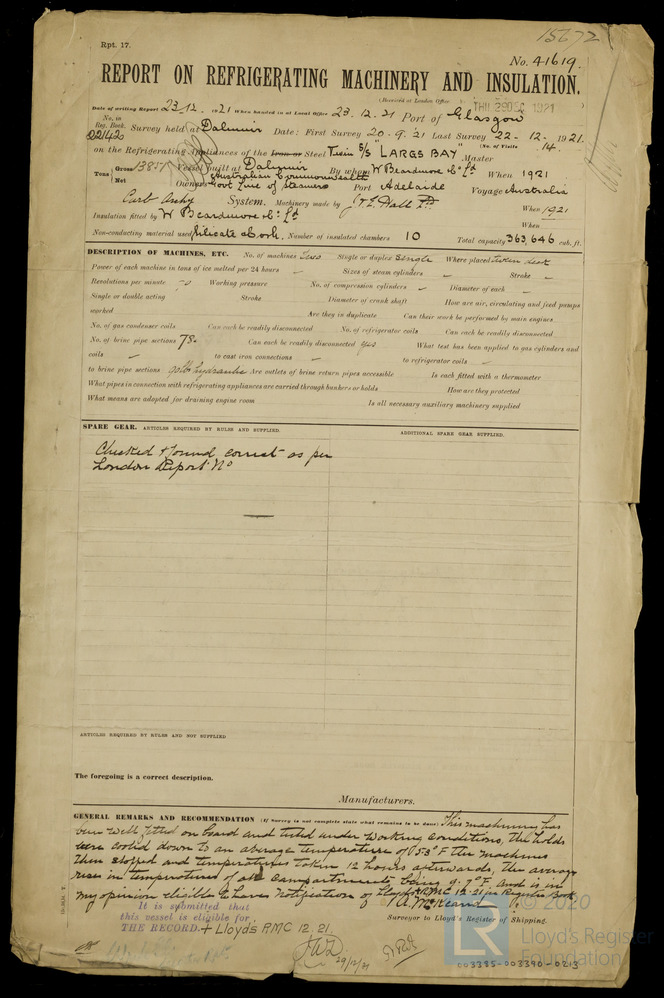 Rpt. 17.
15672
No. 41619.
REPORT ON REFRIGERATING MACHINERY AND INSULATION.
(Received at London Office THU 29 DEC 1921
Date of writing Report 23.12.1921 When handed in at Local Office 23.12.21 Port of Glasgow
No. in Reg. Book. 22142 Survey held at Dalmuir Date: First Survey 20.9.21 Last Survey 22.12.1921.
(No. of Visits 14.)
on the Refrigerating Appliances of the Iron or Steel Twin S/S "LARGS BAY" Master
Tons Gross 13851 Vessel built at Dalmuir By whom W Beardmore & Co Ld When 1921
Net Owners Australian Commonwealth Govt Line of Steamers Port Adelaide Voyage Australia
Carb Anhy System. Machinery made by J & E Hall Ld When 1921
Insulation fitted by W Beardmore & Co Ld When
Non-conducting material used Silicate & Cork. Number of insulated chambers 10 Total capacity 363,646 cub. ft.
DESCRIPTION OF MACHINES, ETC. No. of machines Two Single or duplex Single Where placed tween deck
Power of each machine in tons of ice melted per 24 hours - Sizes of steam cylinders - Stroke -
Revolutions per minute - Working pressure No. of compression cylinders - Diameter of each -
Single or double acting Stroke Diameter of crank shaft How are air, circulating and feed pumps
worked Are they in duplicate Can their work be performed by main engines
No. of gas condenser coils Can each be readily disconnected No. of refrigerator coils Can each be readily disconnected
No. of brine pipe sections 78 - Can each be readily disconnected yes What test has been applied to gas cylinders and
coils - to cast iron connections - to refrigerator coils -
to brine pipe sections hydraulic Are outlets of brine return pipes accessible Is each fitted with a thermometer
What pipes in connection with refrigerating appliances are carried through bunkers or holds How are they protected
What means are adopted for draining engine room Is all necessary auxiliary machinery supplied
SPARE GEAR. ARTICLES REQUIRED BY RULES AND SUPPLIED. ADDITIONAL SPARE GEAR SUPPLIED.
Checked & found correct as per
London Report No
ARTICLES REQUIRED BY RULES AND NOT SUPPLIED
The foregoing is a correct description.
Manufacturers.
GENERAL REMARKS AND RECOMMENDATION (If Survey is not complete state what remains to be done) This machinery has
been well fitted on board and tested under working conditions, the holds
were cooled down to an average temperature of 15.3° F the machines
then stopped and temperatures taken 12 hours afterwards, the average
rise in temperatures of all compartments being 9.7° F. and is in
my opinion eligible to have notification of Lloyds RMC 12.21 in Register Book
It is submitted that
this vessel is eligible for
THE RECORD. + Lloyds RMC 12.21.
Surveyor to Lloyd's Register of Shipping.
29/12/21
© 2020
LR
Lloyd's Register
Foundation
003385-003390-0213